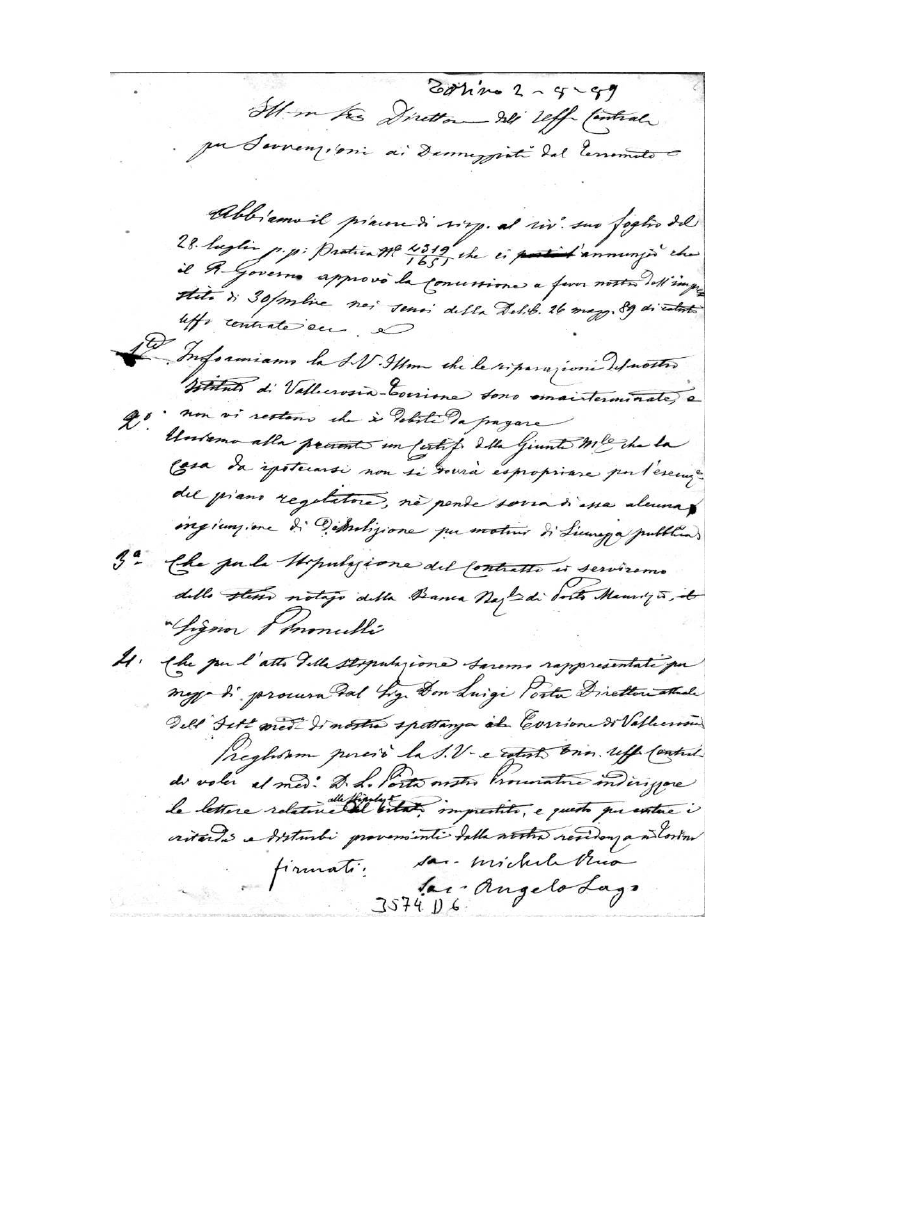 Torino 2-8-89
Ill-mo Sig Direttore dell' Uff. Centrale
per Sovvenzioni ai Danneggiati dal Terremoto
Abbiamo il piacere di risp. al riv. suo foglio del
28. luglio p.p: Pratica N° 4319/1651 che ci l'annunzia che
il R. Governo approvò la concessione a favor nostro dell'impre-
stito di 30/mlire nei sensi della Delib. 26 magg. 89 di cotesto
uffo centrale ecc.
1° Informiamo la S.V. Illma che le riparazioni del nostro
Istituto di Vallecrosia-Torrione sono omai terminate, e
non vi restano che i debiti da pagare
2° Uniamo alla presente un Certif. della Giunta Mle che la
casa da ipotecarsi non si dovrà espropriare per l'esecuze
del piano regolatore, nè pende sovra di essa alcuna
ingiunzione di Demolizione per motivi di Sicurezza pubblica
3a Che per la Stipulazione del Contratto ci serviremo
dello stesso notajo della Banca Nazle di Porto Maurizio, il
Signor
4. Che per l'atto della stipulazione saremo rappresentati per
mezzo di procura dal Sig. Don Luigi Porta Direttore attuale
dell'Istto med. di nostra spettanza al Torrione di Vallecrosia
Preghiam perciò la S.V. e cotesto Onor. Uff. Central.
di voler al med. D. L. Porta nostro Procuratore indirizzare
le lettere relative alla stipulaz. al citato imprestito, e questo per evitare i
ritardi e disturbi provenienti dalla nostra residenza a Torino
firmati: sac. Michele Rua
Sac. Angelo Lago
3574 D 6